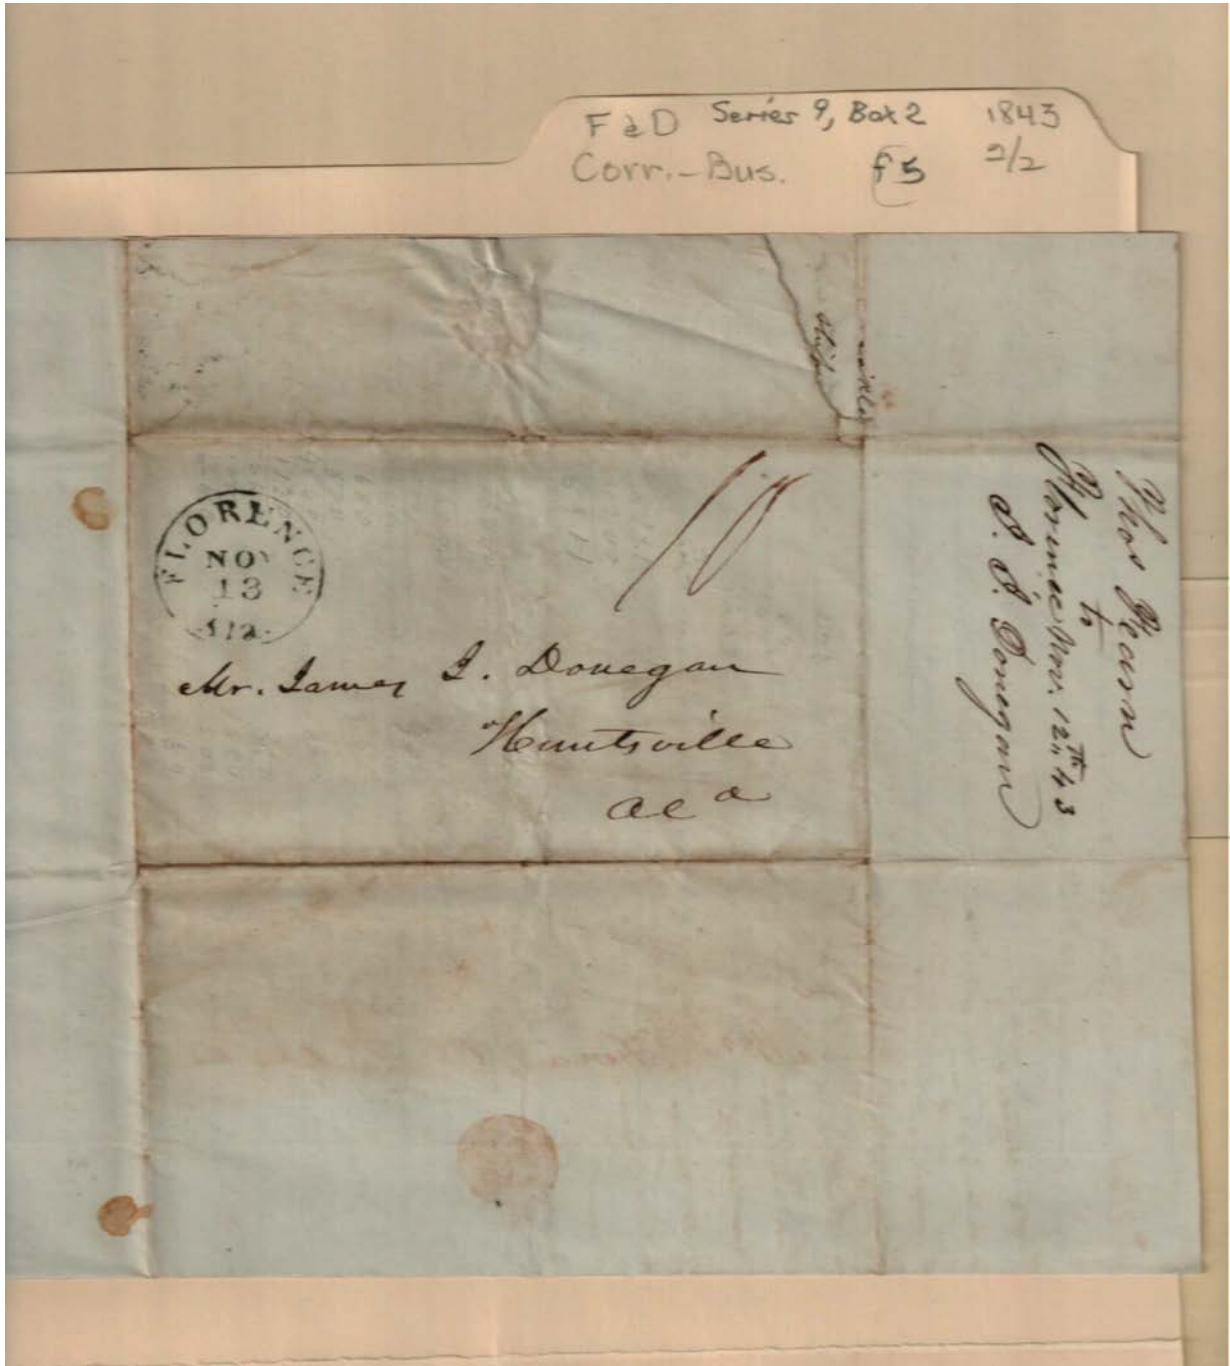 F & D Series 9, Box 2 1843
Corr.-Bus. f5 2/2
FLORENCE
NOV
13
Ala.
10
Mr. James J. Donegan
Huntsville
Ala
Thos Kearn
to
Florence Nov. 12th 43
J. J. Donegan